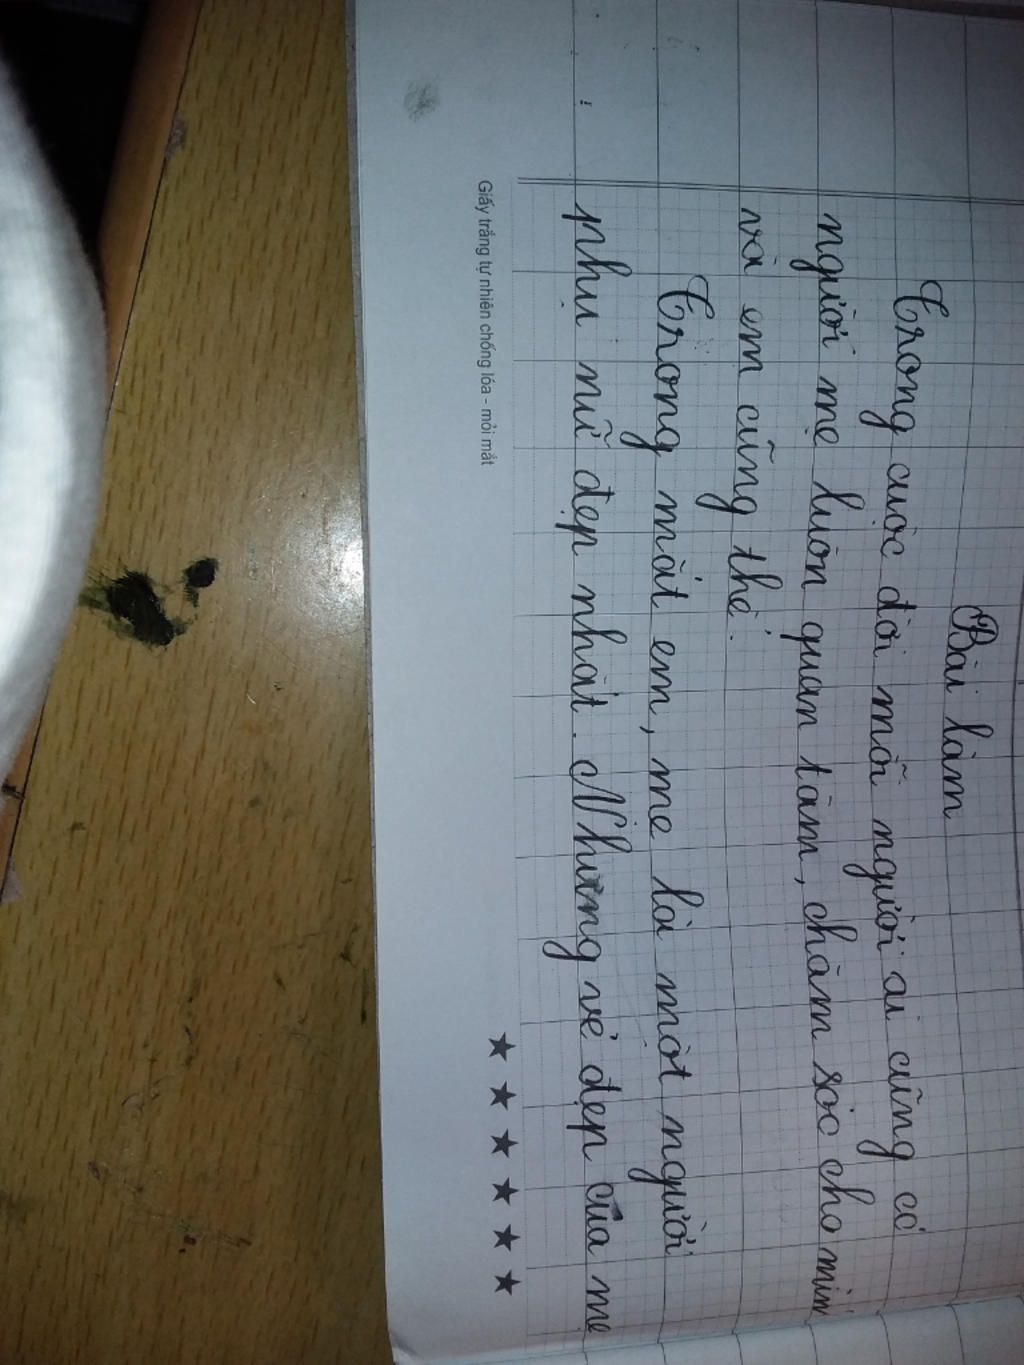 Bài làm
Trong cuộc đời mỗi người ai cũng có
người mẹ luôn quan tâm, chăm sóc cho mình
và em cũng thế.
Trong mắt em, mẹ là một người
phụ nữ đẹp nhất. Nhưng vẻ đẹp của mẹ
Giấy trắng tự nhiên chống lóa - mỏi mắt